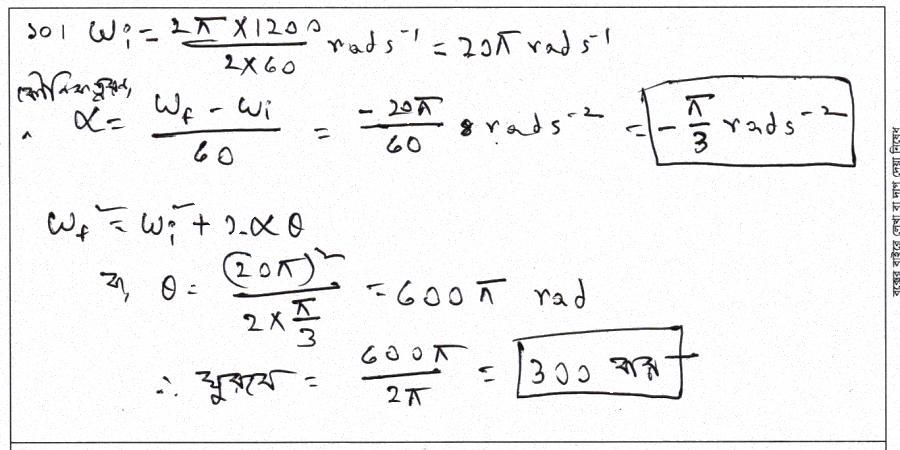 ১০। ω_i = (2π × 1200)/(2×60) rad s⁻¹ = 20π rad s⁻¹
কৌনিক ত্বরণ,
∴ α = (ω_f - ω_i)/60 = (-20π)/60 rad s⁻² = -π/3 rad s⁻²
ω_f² = ω_i² + 2αθ
বা, θ = (20π)²/(2 × π/3) = 600π rad
∴ ঘুরবে = 600π/2π = 300 বার
বক্সের বাইরে লেখা বা দাগ দেয়া নিষেধ